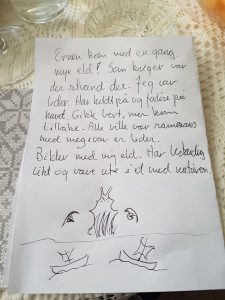 Ørnen kom med en gang.
mye eld! Som kriger var
der strand der. Jeg var
leder. Har holdt på og på
havet. Gikk bort, men kom
tilbake. Alle ville var
med meg som en leder.
Bilder med mye eld. Har
likt og være ute i et med naturen.